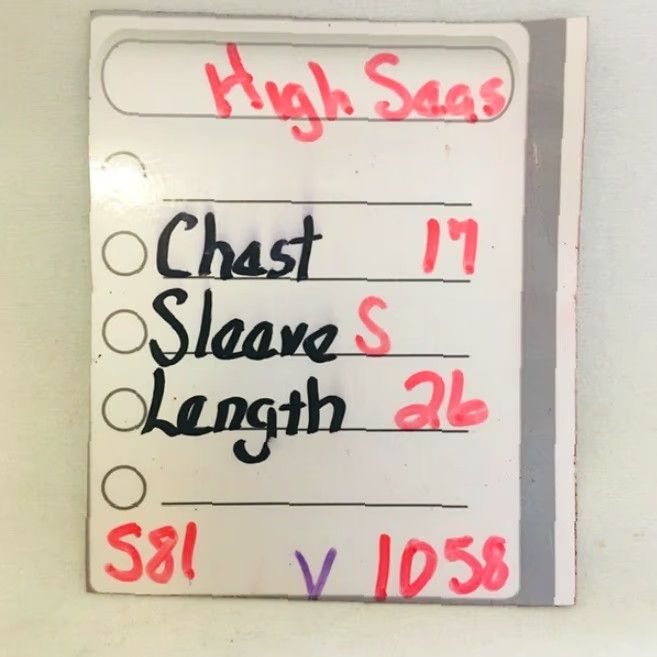 High Seas
Chest 17
Sleeve S
Length 26
S81 V 1058